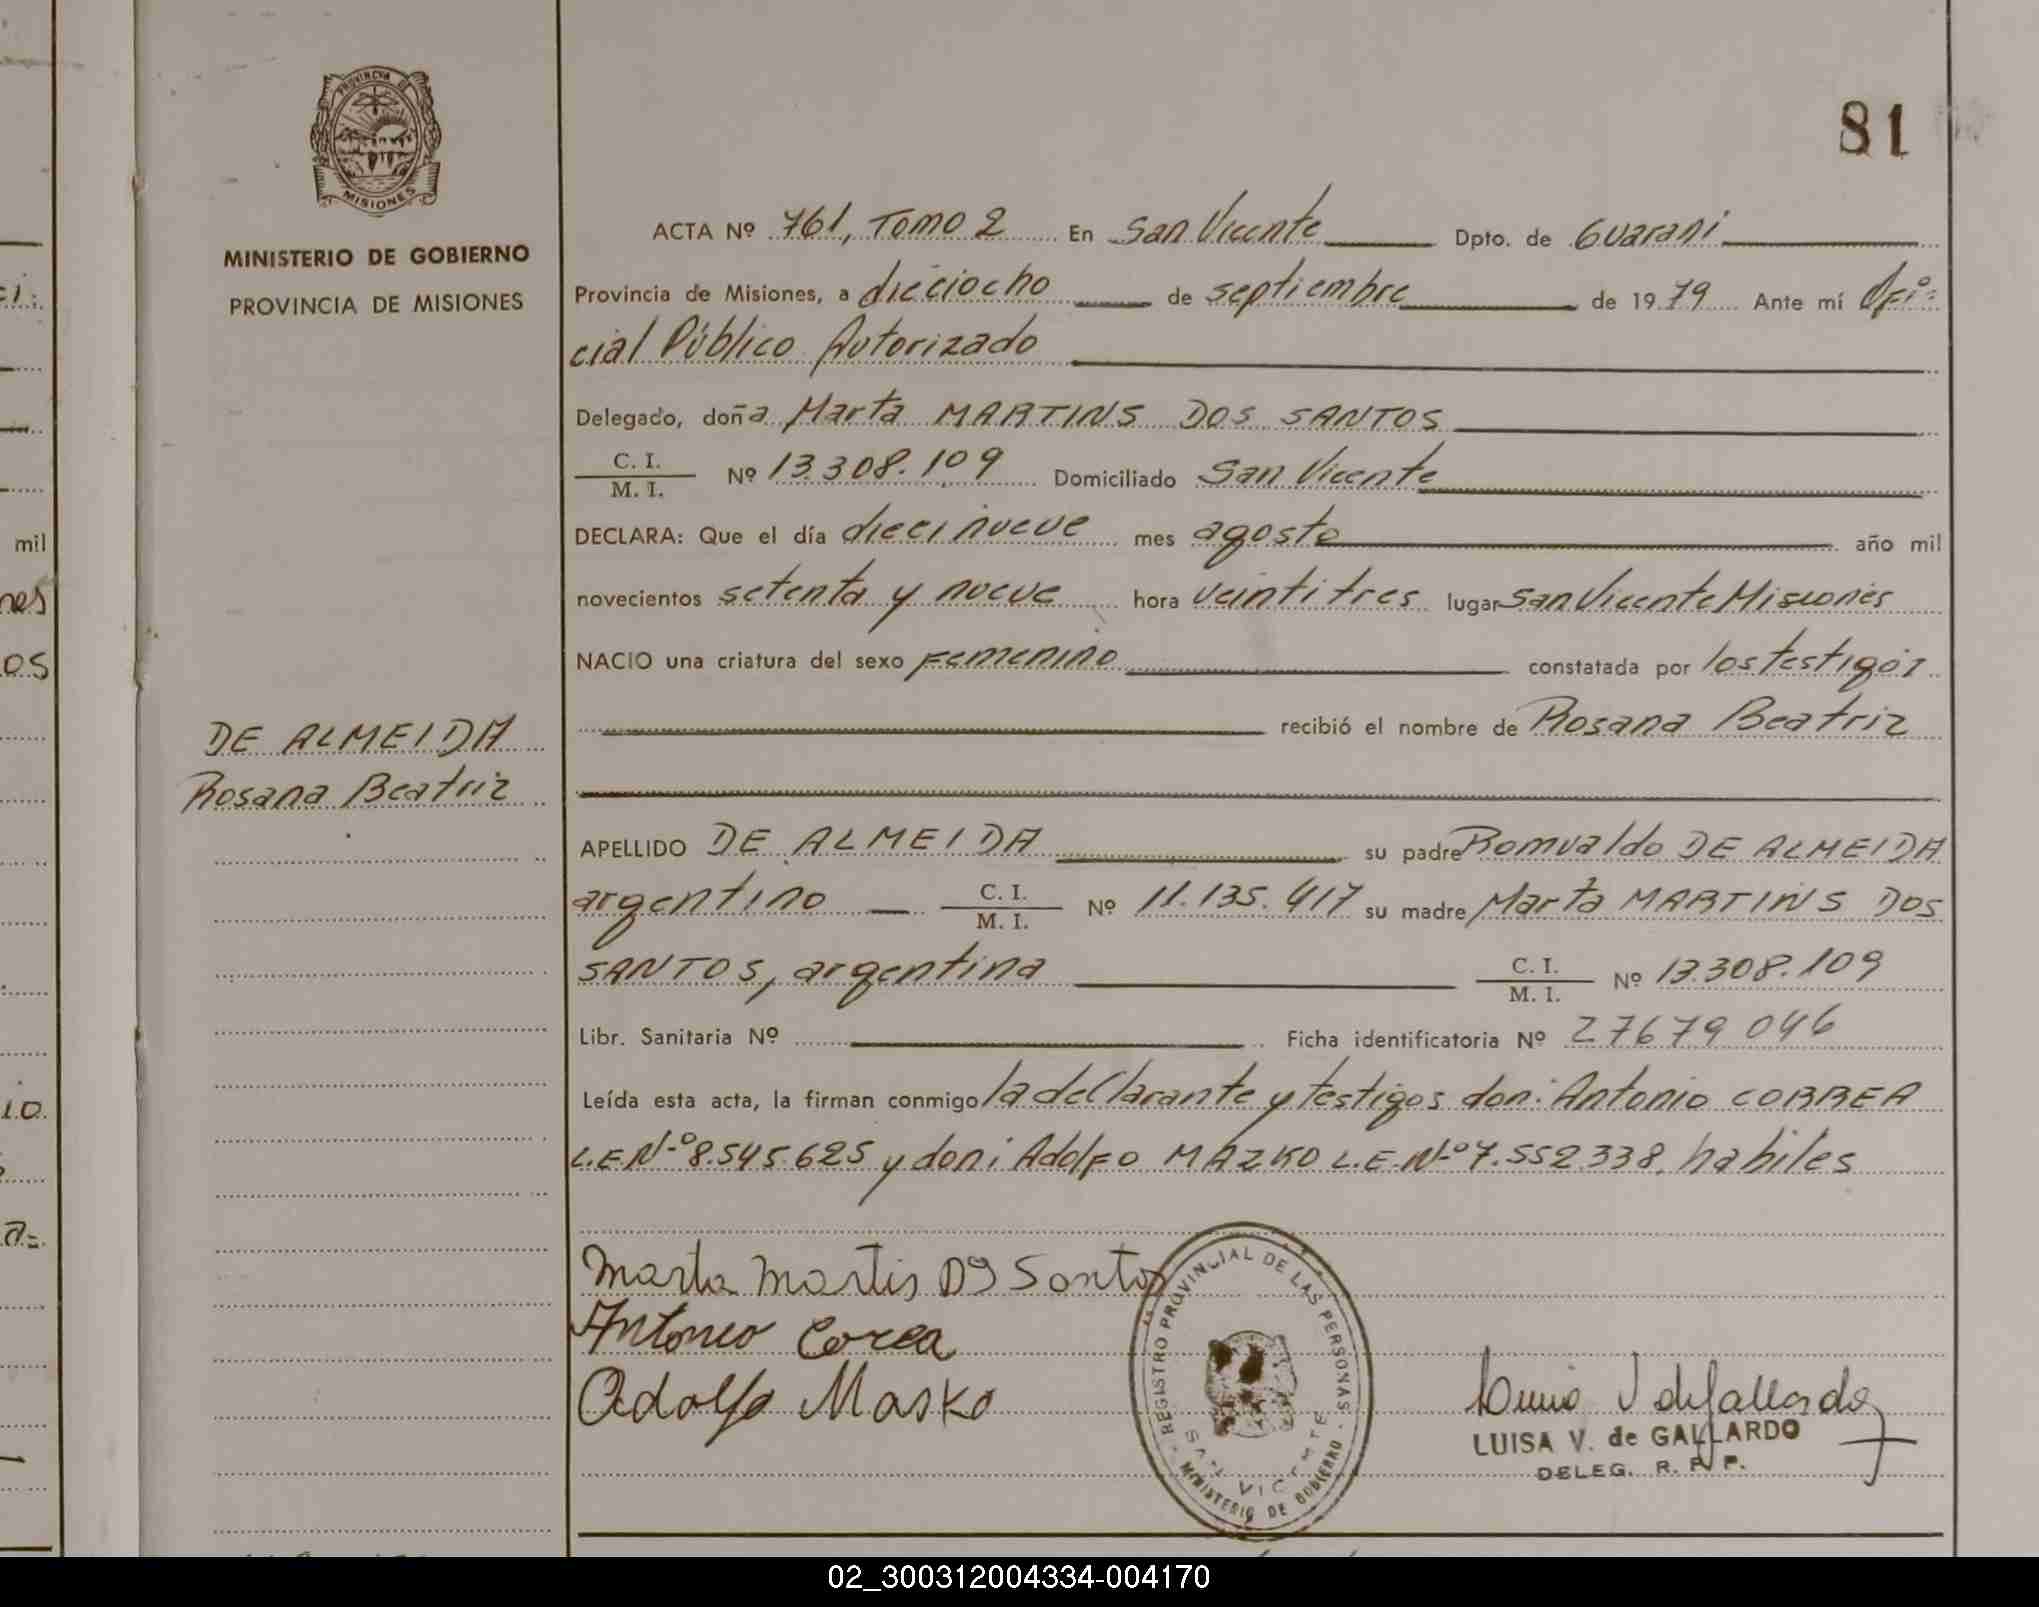 PROVINCIA DE
MISIONES
MINISTERIO DE GOBIERNO
PROVINCIA DE MISIONES
81
ACTA Nº 761, Tomo 2 En San Vicente Dpto. de Guarani
Provincia de Misiones, a dieciocho de septiembre de 1979 Ante mí Ofi-
cial Público Autorizado
Delegado, doña Marta MARTINS DOS SANTOS
C. I.
M. I. Nº 13.308.109 Domiciliado San Vicente
DECLARA: Que el día diecinueve mes agosto año mil
novecientos setenta y nueve hora veintitres lugar San Vicente Misiones
NACIO una criatura del sexo Femenino constatada por los testigos
recibió el nombre de Rosana Beatriz
DE ALMEIDA
Rosana Beatriz
APELLIDO DE ALMEIDA su padre Romualdo DE ALMEIDA
argentino C. I. M. I. Nº 11.135.417 su madre Marta MARTINS DOS
SANTOS, argentina C. I. M. I. Nº 13.308.109
Libr. Sanitaria Nº Ficha identificatoria Nº 27679046
Leída esta acta, la firman conmigo la declarante y testigos don: Antonio CORREA
L.E.Nº 8.545.625 y don: Adolfo MAZKO L.E.Nº 7.552.338, habiles
Marta Martis DS Santos
Antonio Correa
Adolfo Masko
REGISTRO PROVINCIAL DE LAS PERSONAS
SAN VICENTE
MINISTERIO DE GOBIERNO
LUISA V. de GALLARDO
DELEG. R. P. P.
mil
nes
os
10.
a=
02_300312004334-004170